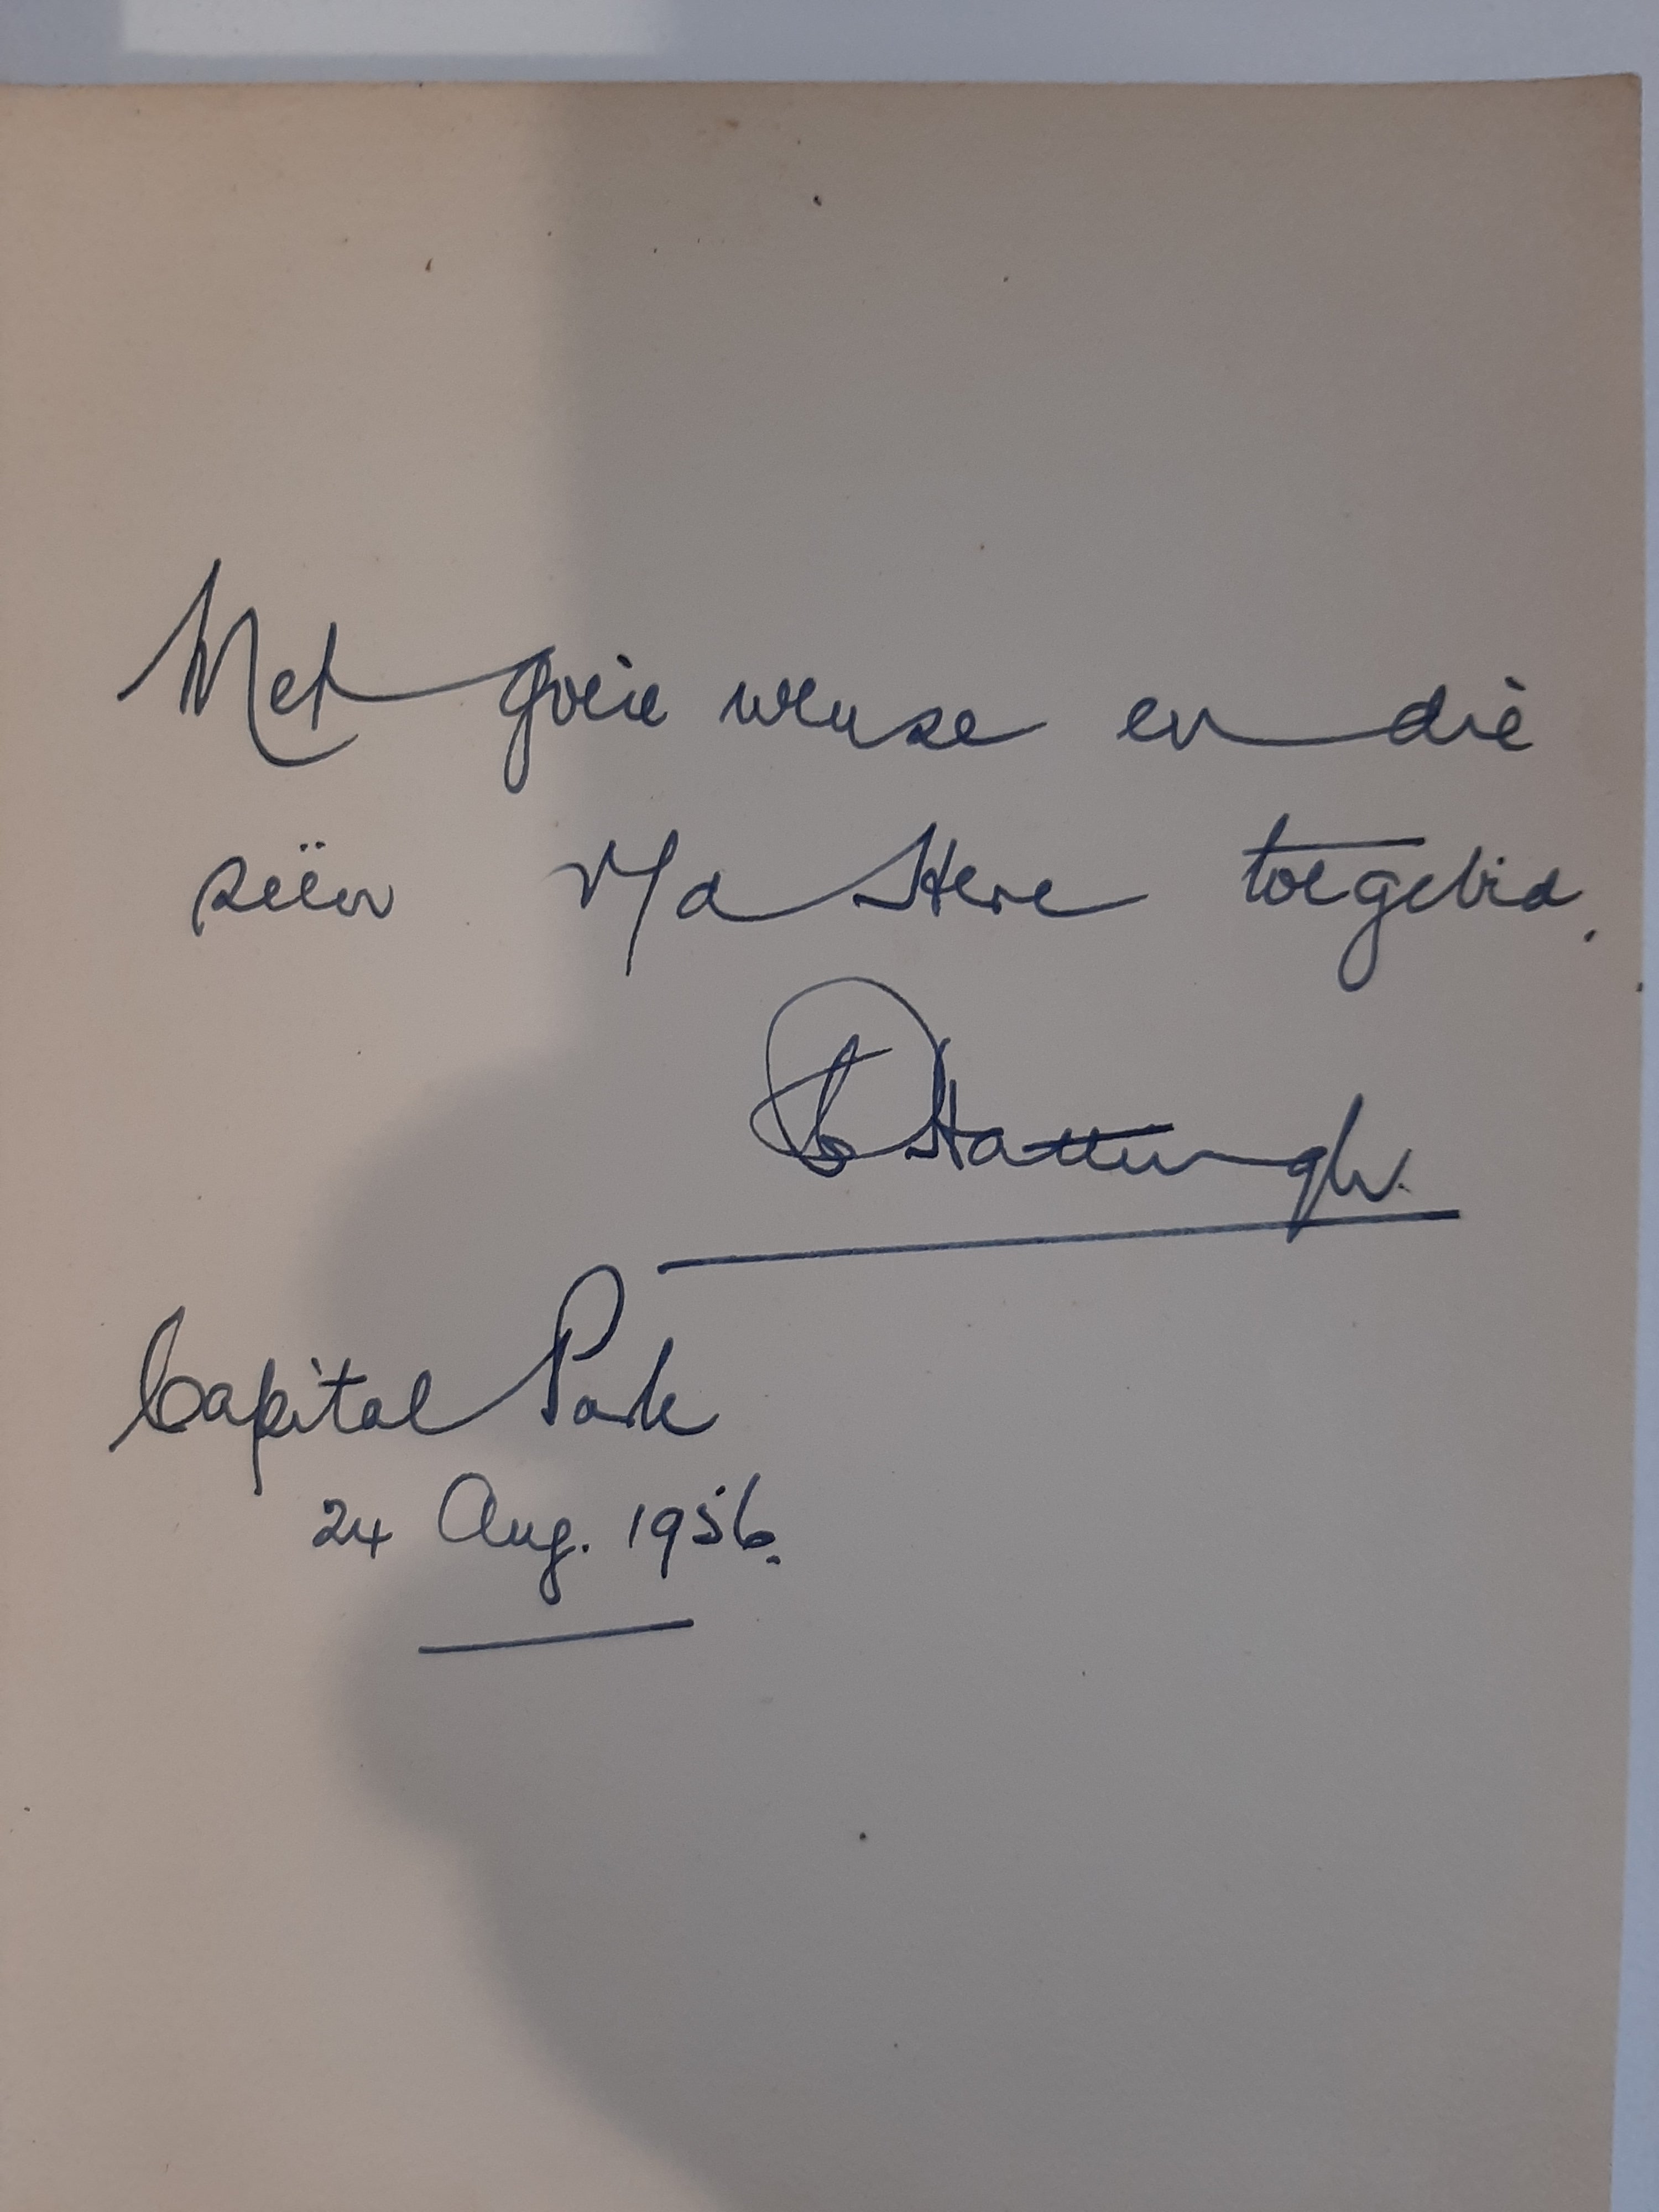 Met goeie wense en die
seën v/d Here toegebid.
Hattingh.
Capital Park
24 Aug. 1956.